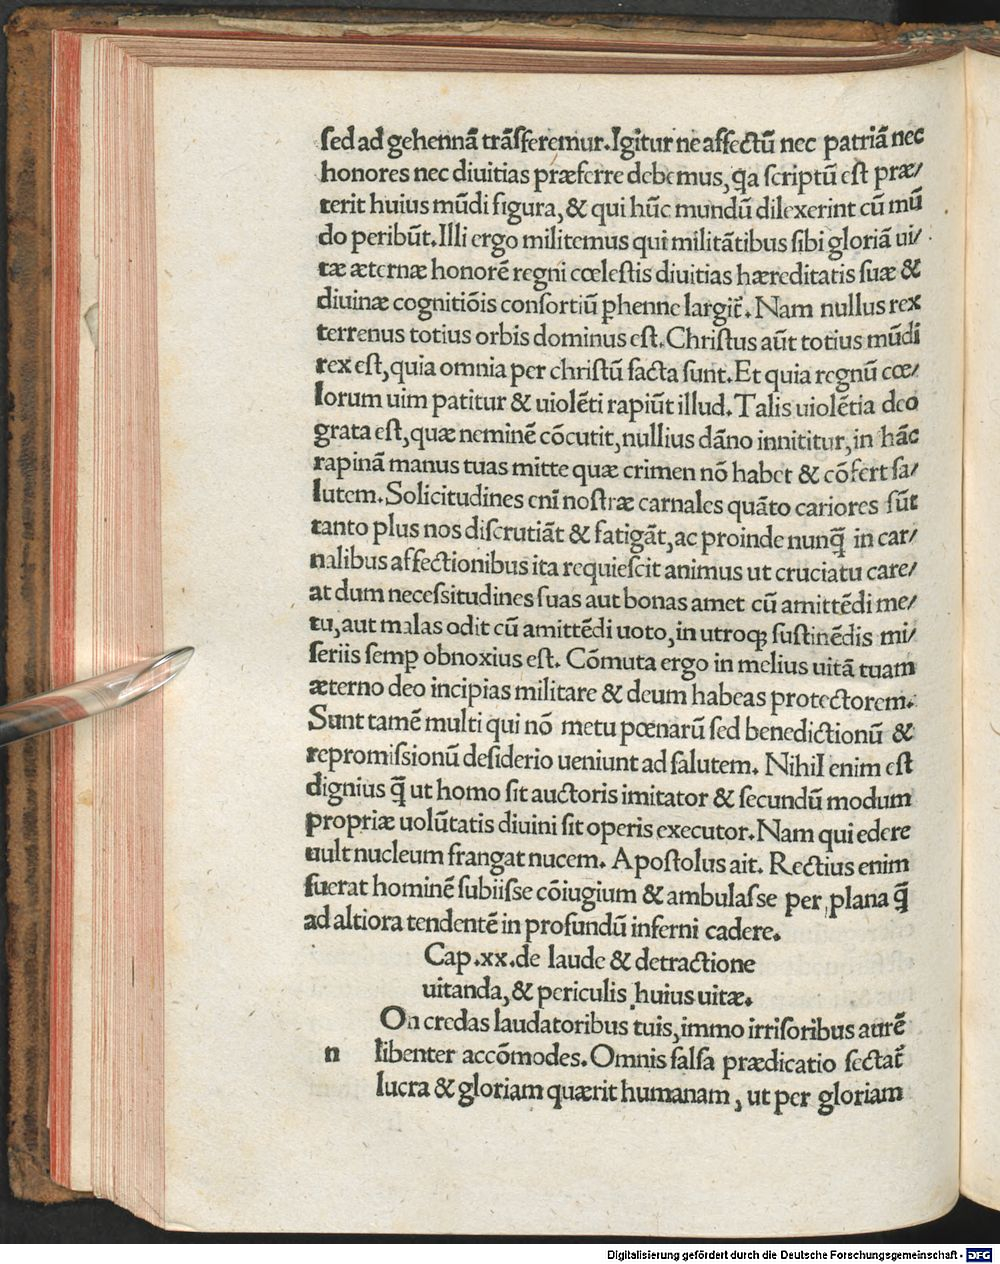 sed ad gehennā trāsferemur. Igitur ne affectū nec patriā nec
honores nec diuitias præferre debemus, q̄a scriptū est præ/
terit huius mūdi figura, & qui hūc mundū dilexerint cū mū
do peribūt. Illi ergo militemus qui militātibus sibi gloriā ui/
tæ æternæ honorē regni cœlestis diuitias hæreditatis suæ &
diuinæ cognitiōis consortiū phenne largit̄. Nam nullus rex
terrenus totius orbis dominus est. Christus aūt totius mūdi
rex est, quia omnia per christū facta sunt. Et quia regnū cœ/
lorum uim patitur & uiolēti rapiūt illud. Talis uiolētia deo
grata est, quæ neminē cōcutit, nullius dāno innititur, in hāc
rapinā manus tuas mitte quæ crimen nō habet & cōfert sa/
lutem. Solicitudines eni nostræ carnales quāto cariores sūt
tanto plus nos discrutiāt & fatigāt, ac proinde nunq̄ in car/
nalibus affectionibus ita requiescit animus ut cruciatu care/
at dum necessitudines suas aut bonas amet cū amittēdi me/
tu, aut malas odit cū amittēdi uoto, in utroqꝫ sustinēdis mi/
seriis semꝑ obnoxius est. Cōmuta ergo in melius uitā tuam
æterno deo incipias militare & deum habeas protectorem.
Sunt tamē multi qui nō metu pœnarū sed benedictionū &
repromissionū desiderio ueniunt ad salutem. Nihil enim est
dignius q̄ ut homo sit auctoris imitator & secundū modum
propriæ uolūtatis diuini sit operis executor. Nam qui edere
uult nucleum frangat nucem. Apostolus ait. Rectius enim
fuerat hominē subiisse cōiugium & ambulasse per plana q̄
ad altiora tendentē in profundū inferni cadere.
Cap .xx. de laude & detractione
uitanda, & periculis huius uitæ.
On credas laudatoribus tuis, immo irrisoribus aurē
n libenter accōmodes. Omnis falsa prædicatio sectat̄
lucra & gloriam quærit humanam, ut per gloriam
Digitalisierung gefördert durch die Deutsche Forschungsgemeinschaft - DFG